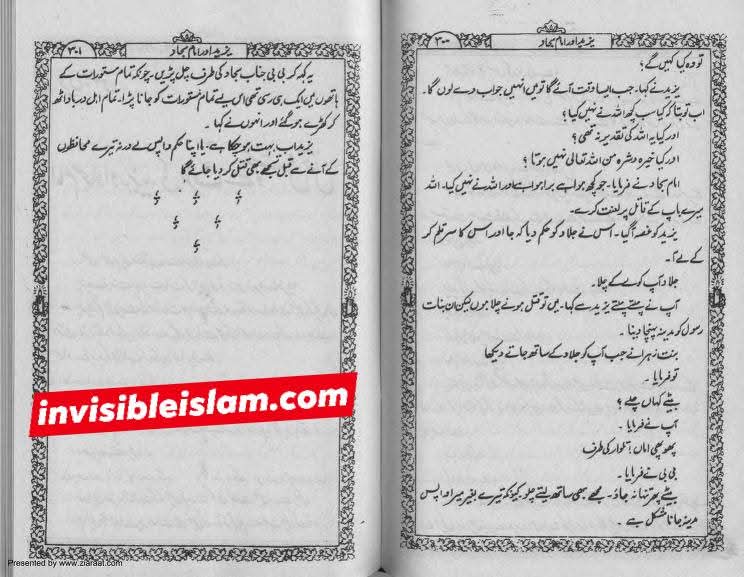 یزید اور امام سجاد
۳۰۰
تو وہ کیا کہیں گے؟
یزید نے کہا۔ جب ایسا وقت آئے گا تو میں انہیں جواب دے لوں گا۔
اب تو بتا کہ کیا سب کچھ اللہ نے نہیں کیا؟
اور کیا یہ اللہ کی تقدیر نہ تھی؟
اور کیا خیرہ و شرہ من اللہ تعالیٰ نہیں ہوتا؟
امام سجاد نے فرمایا۔ جو کچھ ہوا ہے برا ہوا ہے اور اللہ نے نہیں کیا۔ اللہ
میرے باپ کے قاتل پر لعنت کرے۔
یزید کو غصہ آگیا۔ اس نے جلاد کو حکم دیا کہ جا اور اس کا سر قلم کر
کے لے آ۔
جلاد آپ کو لے کے چلا۔
آپ نے ہنستے ہنستے یزید سے کہا۔ میں تو قتل ہونے چلا ہوں لیکن ان بنات
رسول کو مدینہ پہنچا دینا۔
بنت زہرا نے جب آپ کو جلاد کے ساتھ جاتے دیکھا
تو فرمایا۔
بیٹے کہاں چلے؟
آپ نے فرمایا۔
پھوپھی اماں! تلوار کی طرف
بی بی نے فرمایا۔
بیٹے پھر تنہا نہ جاؤ۔ مجھے بھی ساتھ لیتے چلو کیونکہ تیرے بغیر میرا واپس
مدینہ جانا مشکل ہے۔
یزید اور امام سجاد
۳۰۱
یہ کہہ کر بی بی جناب سجاد کی طرف چل پڑیں۔ چونکہ تمام مستورات کے
ہاتھوں میں ایک ہی رسی تھی اس لیے تمام مستورات کو جانا پڑا۔ تمام اہل دربار اٹھ
کر کھڑے ہو گئے اور انہوں نے کہا۔
یزید اب بہت ہو چکا ہے۔ یا اپنا حکم واپس لے ورنہ تیرے محافظوں
کے آنے سے قبل تجھے بھی قتل کر دیا جائے گا
invisibleislam.com
Presented by www.ziaraat.com